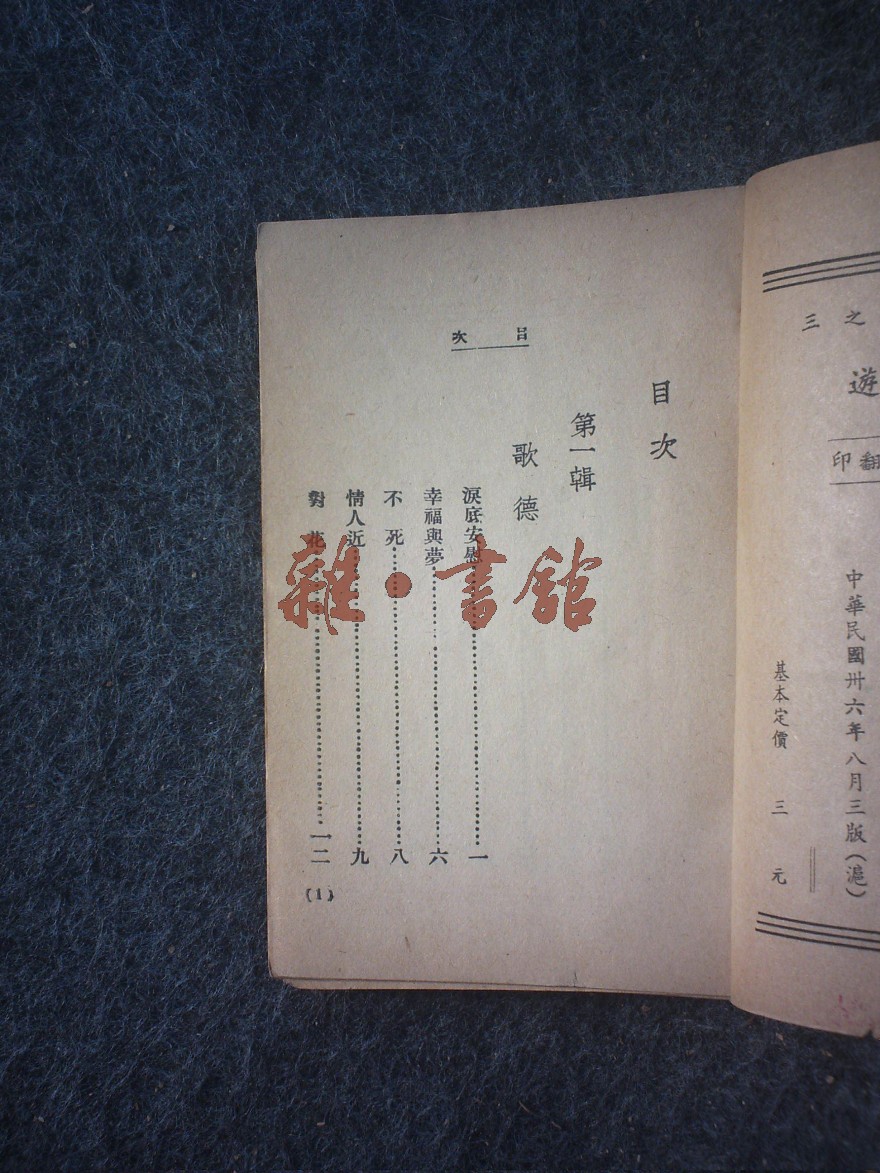 三之
遊
翻印
中華民國卅六年八月三版(滬)
基本定價 三元
目次
目次
第一輯
歌德
淚底安慰……一
幸福與夢……六
不死……八
情人近……九
對花……一二
(1)
雜·書館